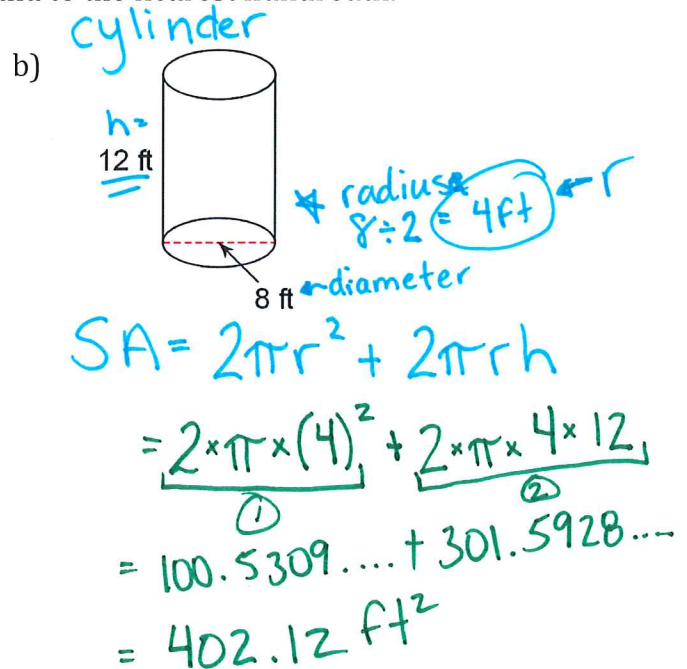 cylinder
b)
h=
12 ft
radius
8÷2 = 4ft ← r
8 ft ← diameter
SA = 2πr² + 2πrh
= 2×π×(4)² + 2×π×4×12
① ②
= 100.5309.... + 301.5928....
= 402.12 ft²